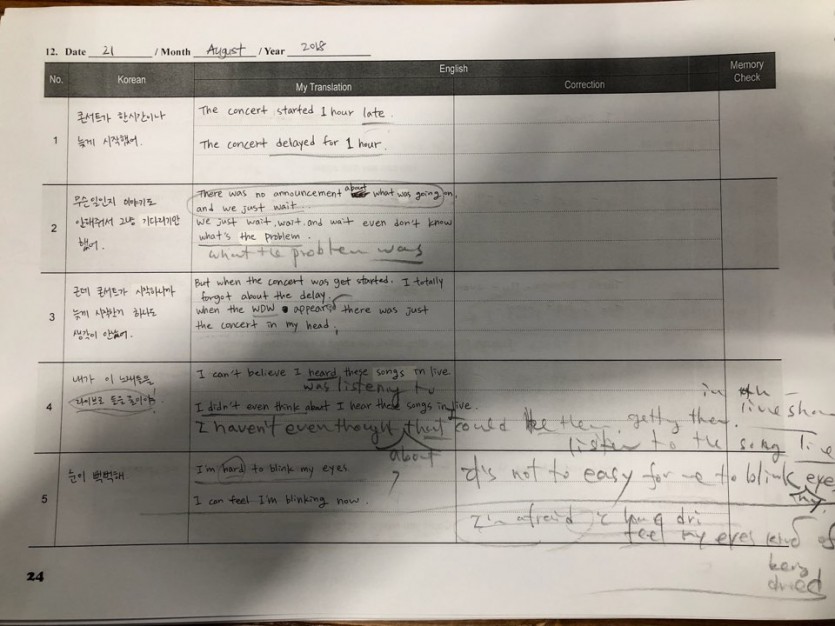 12. Date 21 / Month August / Year 2018
No. Korean English Memory Check
My Translation Correction
1
콘서트가 한시간이나
늦게 시작했어.
The concert started 1 hour late.
The concert delayed for 1 hour.
2
무슨일인지 이야기도
안해줘서 그냥 기다리기만
했어.
There was no announcement about what was going on,
and we just wait.
We just wait, wait, and wait even don't know
what's the problem.
what the problem was
3
근데 콘서트가 시작하니까
늦게 시작한게 하나도
생각이 안났어.
But when the concert was get started. I totally
forgot about the delay.
when the WDW appeared there was just
the concert in my head.
4
내가 이 노래들을
라이브로 들을 줄이야!
I can't believe I heard these songs in live
was listening to
I didn't even think about I hear these songs in live.
I haven't even thought that I could
about
in
live show
listen to the song live
5
눈이 뻑뻑해
I'm hard to blink my eyes.
I can feel I'm blinking now.
It's not to easy for me to blink eye
my
I'm afraid
feel my eyes kind of
being
dried
24